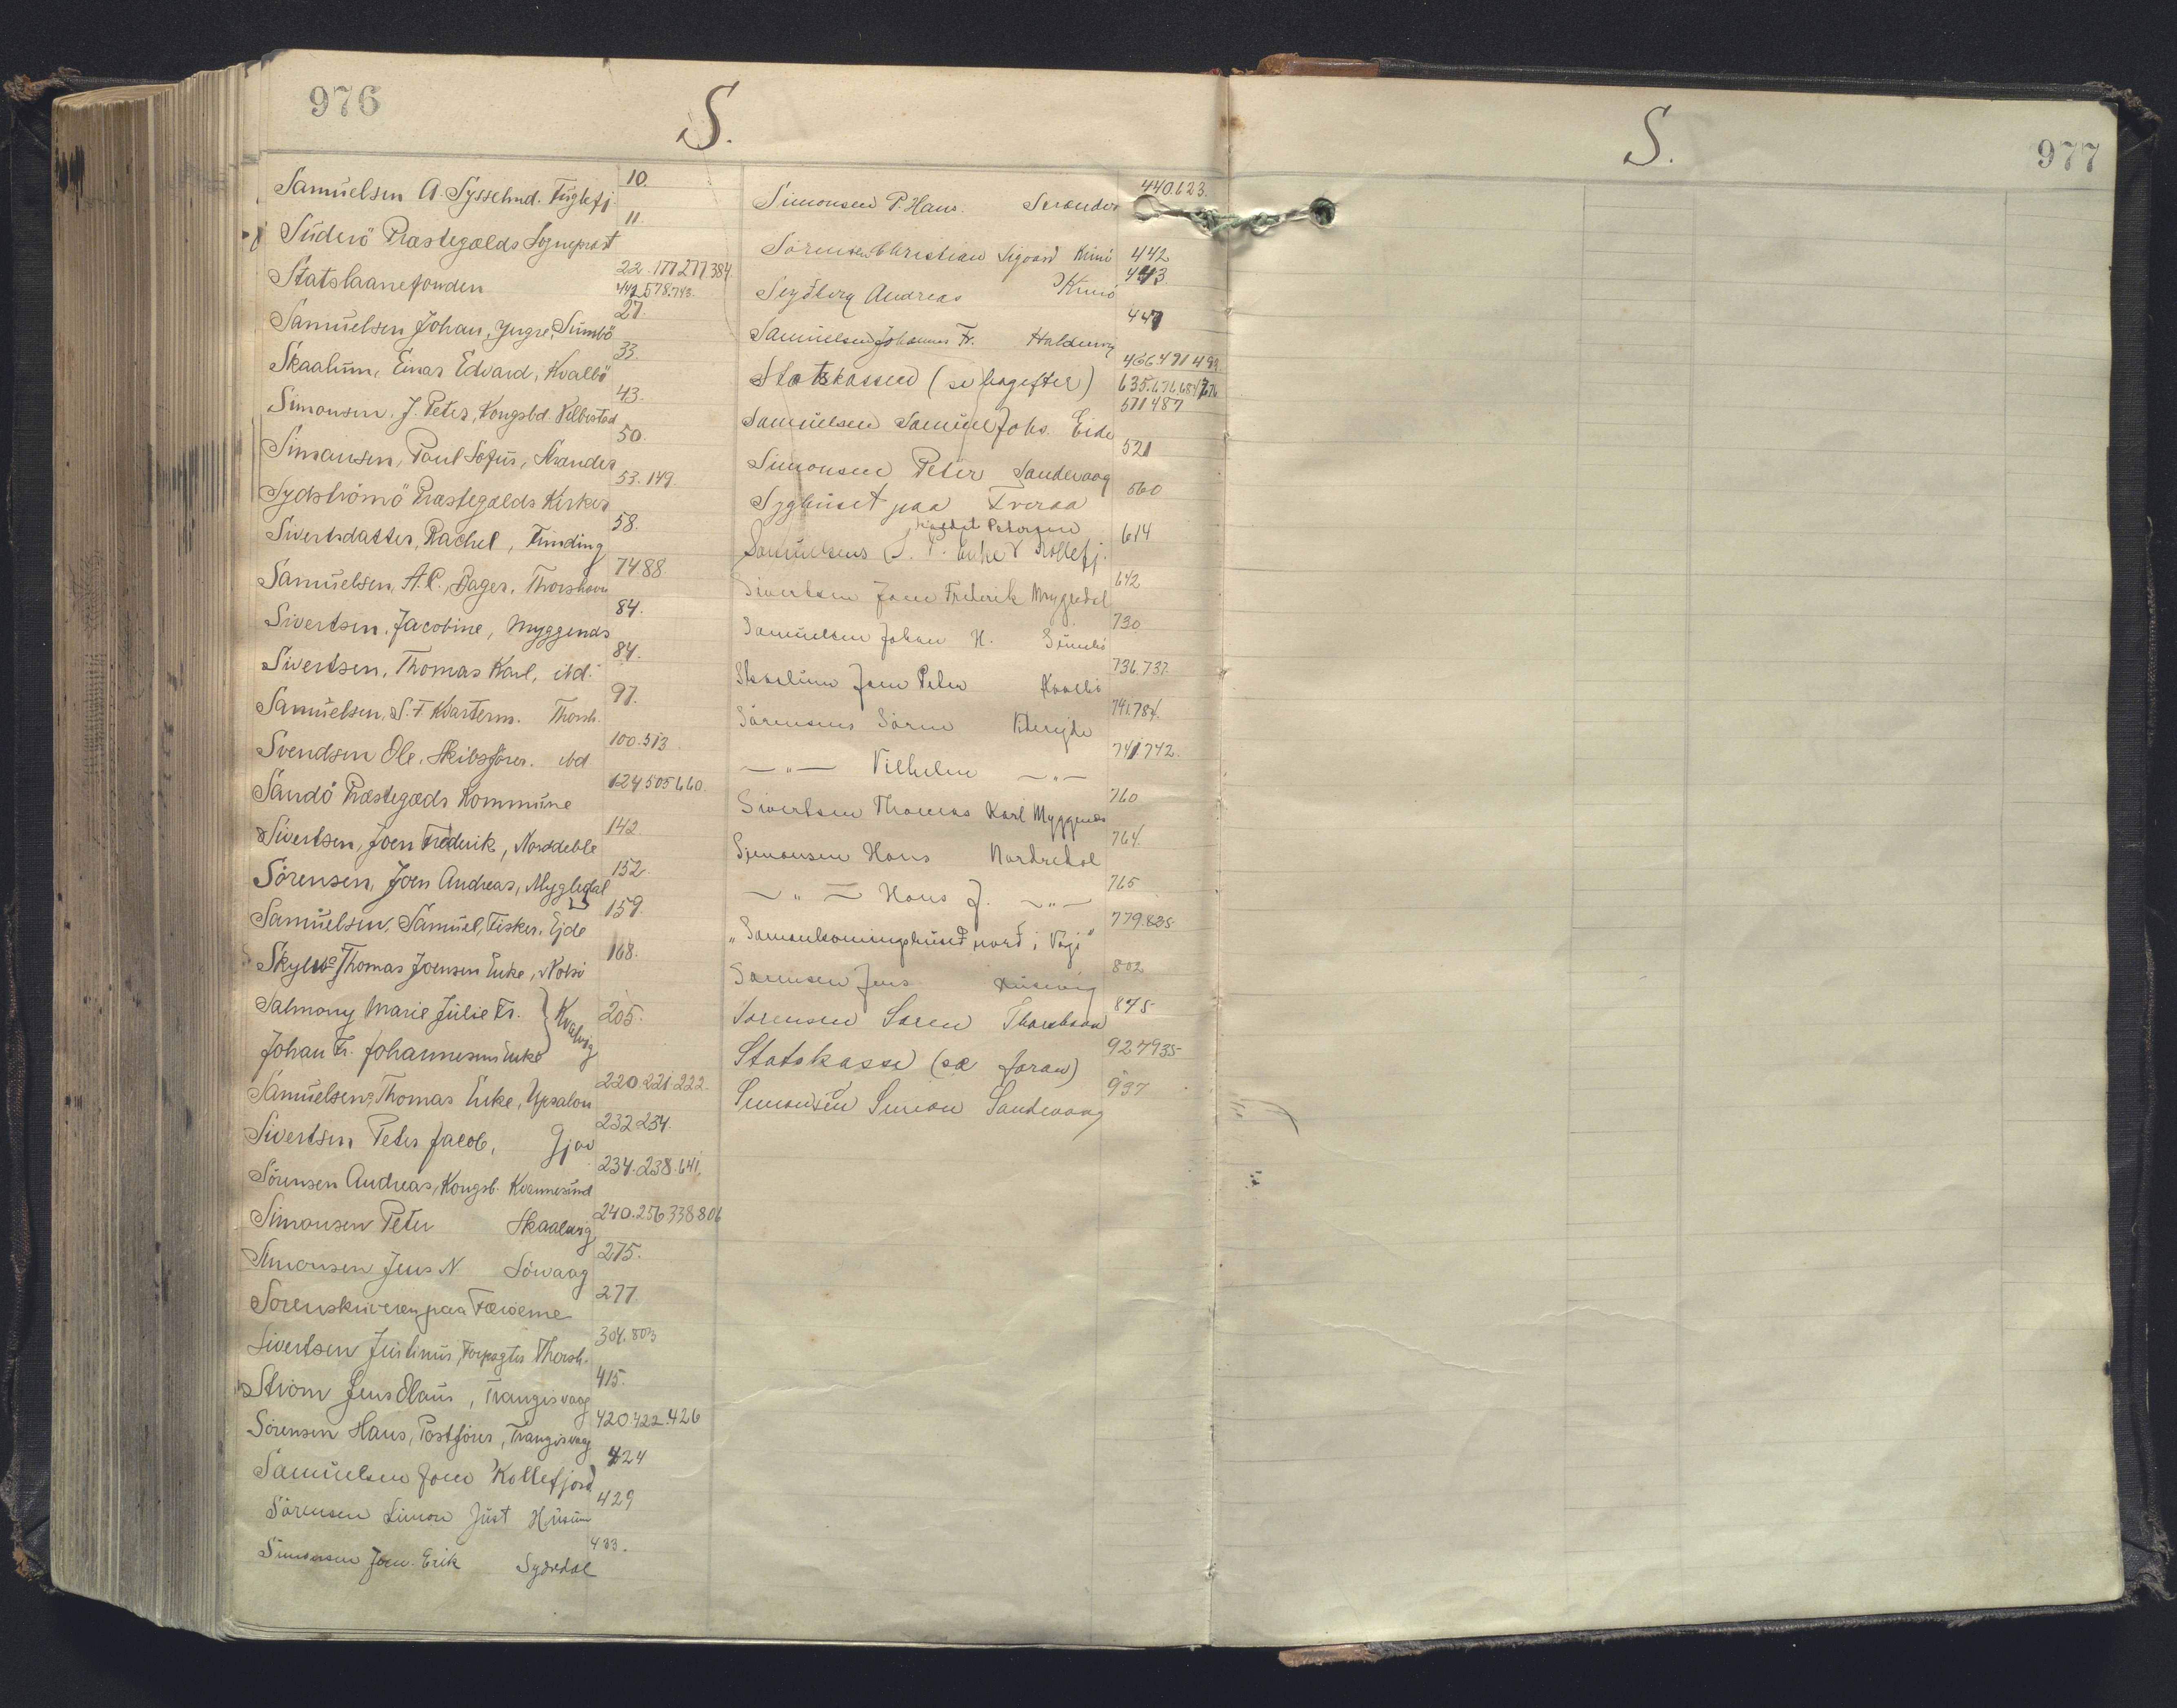 976
S.
Samuelsen A. Sysselmd. Fuglefj. 10.
Suderö Præstegælds Sognepræst 11.
Statslaanefonden 22. 177 277 384
442 578. 743.
Samuelsen Johan, Yngre, Sumbö 27.
Skaalum, Einar Edvard, Kvalbö 33.
Simonsen, J. Peter, Kongsbd. Velbestad 43.
Simonsen, Poul Sofus, Strender 50.
Sydströmö Præstegælds Kirker 53. 149.
Sivertsdatter, Rachel, Funding 58.
Samuelsen, A. C., Bager, Thorshavn 74 88
Sivertsen, Jacobine, Myggenæs 84.
Sivertsen, Thomas Karl, ibd. 84.
Samuelsen, S. F. Kvarterm. Thorsh. 97.
Svendsen Ole, Skibsförer. ibd 100. 513.
Sandö Præstegæds Kommune 124 505 660.
Sivertsen, Joen Frederik, Norddeble 142.
Sörensen, Joen Andreas, Mygledal 152.
Samuelsen, Samuel, Fisker, Ejde 159.
Thomas Joensens Enke, Nolsö 168.
Salmony Marie Julie Fr. } Kvalvig 205.
Johan Fr. Johannesens Enke
Samuelsens Thomas Enke, Upsalon 220. 221. 222.
Sivertsen Peter Jacob, Gjov 232 234.
Sörensen Andreas, Kongsb. Kvannesund 234. 238. 641.
Simonsen Peter Skaalevig 240. 256 338 806
Simonsen Jens N. Sörvaag 275.
Sorenskriveren paa Færöerne 277.
Sivertsen Justinus, Forpagter Thorsh. 304. 803
Ström Jens Olaus, Trangisvaag 415.
Sörensen Hans, Postförer, Trangisvaag 420. 422. 426
Samuelsen Joen Kollefjord 424
Sörensen Simon Just Husum 429
Simonsen Joen Erik Sydredal 433.
Simonsen P. Hans. Strender 440. 623.
Sörensen Christian Sigvard Kunö 442
Seydberg Andreas Kunö 443.
Samuelsen Johannes Fr. Haldersvig 447
Statskassen (se bagefter) 466. 471 499.
635. 676. 684
Samuelsen Samuel Johs. Eide 511 487
Simonsen Peter Sandevaag 521
Syghuset paa Tveraa 560
Rachel Petersen
Samuelsens S. P. Enke Kollefj. 614
Sivertsen Joen Frederik Mygledal 642
Samuelsen Johan H. Sumbö 730
Skaalum Joen Peter Kvalbö 736. 737.
Sörensens Sören Klaksvig 741. 784.
—"— Vilhelm —"— 741 742.
Sivertsen Thomas Karl Myggenæs 760
Simonsen Hans Nordredal 764.
—"— Hans J. —"— 765
"Samankomingshúsið norð i Vági" 779. 825
Sörensen Jens Husevig 802
Sörensen Sören Thorshavn 875
Statskasse (se foran) 927 935
Simonsen Simon Sandevaag 937
S.
977